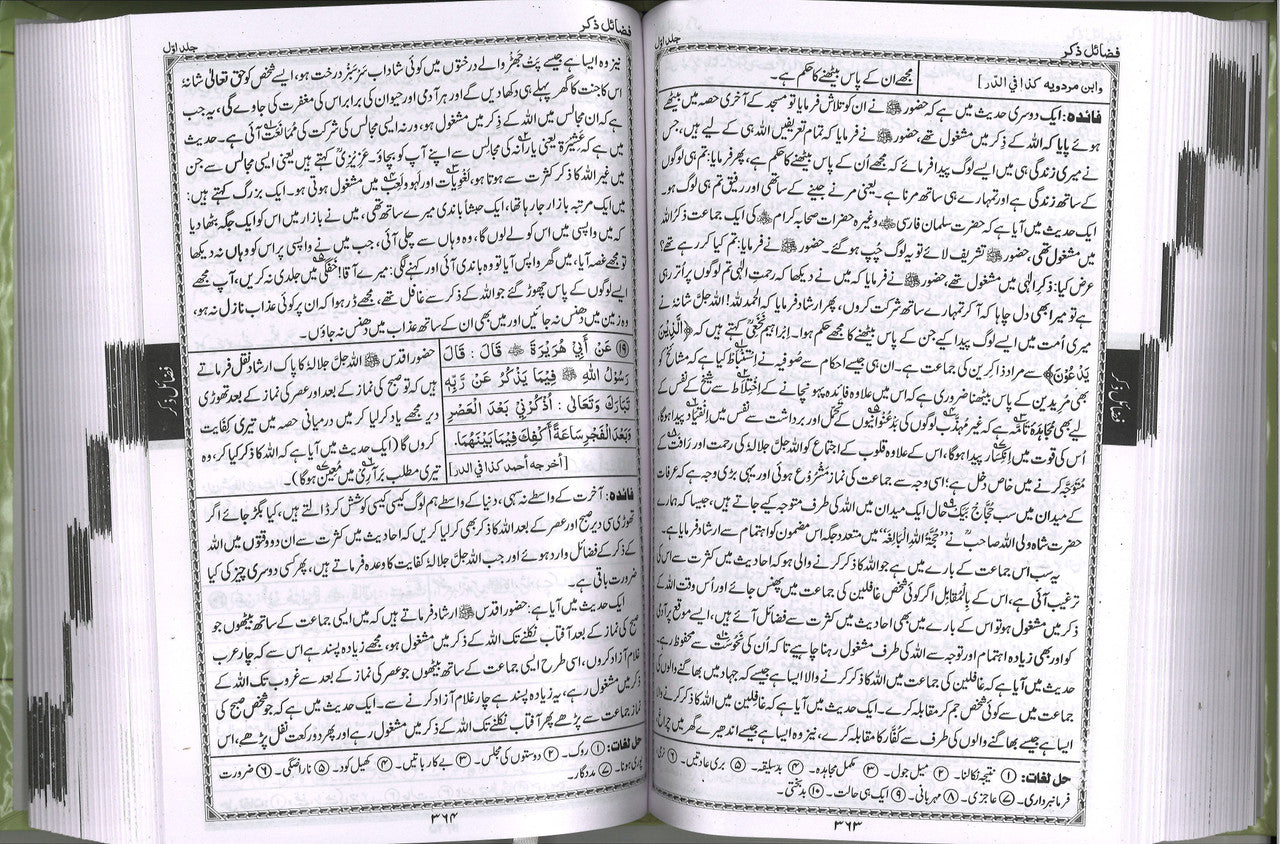 فضائل ذکر
جلد اوّل
وابن مردویہ کذا فی الدّر]
مجھے ان کے پاس بیٹھنے کا حکم ہے۔
فائدہ: ایک دوسری حدیث میں ہے کہ حضور ﷺ نے ان کو تلاش فرمایا تو مسجد کے آخری حصہ میں بیٹھے
ہوئے پایا کہ اللہ کے ذکر میں مشغول تھے، حضور ﷺ نے فرمایا کہ تمام تعریفیں اللہ ہی کے لیے ہیں، جس
نے میری زندگی ہی میں ایسے لوگ پیدا فرمائے کہ مجھے اُن کے پاس بیٹھنے کا حکم ہے، پھر فرمایا: تم ہی لوگوں
کے ساتھ زندگی ہے اور تمہارے ہی ساتھ مرنا ہے۔ یعنی مرنے جینے کے ساتھی اور رفیق تم ہی لوگ ہو۔
ایک حدیث میں آیا ہے کہ حضرت سلمان فارسی ؓ وغیرہ حضرات صحابہ کرام ؓ کی ایک جماعت ذکرُ اللہ
میں مشغول تھی، حضور ﷺ تشریف لائے تو یہ لوگ چُپ ہو گئے۔ حضور ﷺ نے فرمایا: تم کیا کر رہے تھے؟
عرض کیا: ذکرِ الٰہی میں مشغول تھے، حضور ﷺ نے فرمایا کہ میں نے دیکھا کہ رحمتِ الٰہی تم لوگوں پر اُتر رہی
ہے تو میرا بھی دل چاہا کہ آ کر تمہارے ساتھ شرکت کروں، پھر ارشاد فرمایا کہ الحمد للہ! اللہ جلّ شانہٗ نے
میری اُمت میں ایسے لوگ پیدا کیے جن کے پاس بیٹھنے کا مجھے حکم ہوا۔ ابراہیم نخعیؒ کہتے ہیں کہ ﴿الَّذِیْنَ
یَدْعُوْنَ﴾ سے مراد ذاکرین کی جماعت ہے۔ ان ہی جیسے احکام سے صوفیہ نے استنباط کیا ہے کہ مشائخ کو
بھی مریدین کے پاس بیٹھنا ضروری ہے کہ اس میں علاوہ فائدہ پہونچانے کے اختلاط سے شیخ کے نفس کے
لیے بھی مجاہدۂ تامّہ ہے کہ غیر مہذب لوگوں کی بدعنوانیوں کے تحمل اور برداشت سے نفس میں انقیاد پیدا ہوگا،
اُس کی قوت میں انکسار پیدا ہوگا، اس کے علاوہ قلوب کے اجتماع کو اللہ جلّ جلالہٗ کی رحمت اور رافت کے
متوجہ کرنے میں خاص دخل ہے؛ اسی وجہ سے جماعت کی نماز مشروع ہوئی اور یہی بڑی وجہ ہے کہ عرفات
کے میدان میں سب حجاج بیک حال ایک میدان میں اللہ کی طرف متوجہ کیے جاتے ہیں، جیسا کہ ہمارے
حضرت شاہ ولی اللہ صاحبؒ نے ”حُجّۃُ اللہِ البَالِغَہ“ میں متعدد جگہ اس مضمون کو اہتمام سے ارشاد فرمایا ہے۔
یہ سب اس جماعت کے بارے میں ہے جو اللہ کا ذکر کرنے والی ہو کہ احادیث میں کثرت سے اس کی
ترغیب آئی ہے، اس کے بالمقابل اگر کوئی شخص غافلین کی جماعت میں پھنس جائے اور اُس وقت اللہ کے
ذکر میں مشغول ہو تو اس کے بارے میں بھی احادیث میں کثرت سے فضائل آئے ہیں، ایسے موقع پر آدمی
کو اور بھی زیادہ اہتمام اور توجہ سے اللہ کی طرف مشغول رہنا چاہیے تاکہ اُن کی نحوست سے محفوظ رہے۔
حدیث میں آیا ہے کہ غافلین کی جماعت میں اللہ کا ذکر کرنے والا ایسا ہے جیسے کہ جہاد میں بھاگنے والوں کی
جماعت میں سے کوئی شخص جم کر مقابلہ کرے۔ ایک حدیث میں ہے کہ غافلین میں اللہ کا ذکر کرنے والا
ایسا ہے جیسے بھاگنے والوں کی طرف سے کفار کا مقابلہ کرے، نیز وہ ایسا ہے جیسے اندھیرے گھر میں چراغ،
حل لغات: ① نتیجہ نکالنا۔ ② میل جول۔ ③ مکمل مجاہدہ۔ ④ بدسلیقہ۔ ⑤ بری عادتیں۔ ⑥ نرمی
فرمانبرداری۔ ⑦ عاجزی۔ ⑧ مہربانی۔ ⑨ ایک ہی حالت۔ ⑩ بدبختی۔
۳۶۳
فضائل ذکر
فضائل ذکر
جلد اوّل
نیز وہ ایسا ہے جیسے پت جھڑ والے درختوں میں کوئی شاداب سرسبز درخت ہو، ایسے شخص کو حق تعالیٰ شانہٗ
اس کا جنت کا گھر پہلے ہی دکھا دیں گے اور ہر آدمی اور حیوان کی برابر اس کی مغفرت کی جاوے گی، یہ جب
ہے کہ ان مجالس میں اللہ کے ذکر میں مشغول ہو، ورنہ ایسی مجالس کی شرکت کی ممانعت آئی ہے۔ حدیث
میں ہے کہ عشیرۃ یعنی یارانہ کی مجالس سے اپنے آپ کو بچاؤ۔ عزیزیؒ کہتے ہیں یعنی ایسی مجالس سے جن
میں غیر اللہ کا ذکر کثرت سے ہوتا ہو، لغویات اور لہو ولعب میں مشغول ہوتی ہو۔ ایک بزرگ کہتے ہیں:
میں ایک مرتبہ بازار جا رہا تھا، ایک حبشن باندی میرے ساتھ تھی، میں نے بازار میں اس کو ایک جگہ بٹھا دیا
کہ میں واپسی میں اس کو لے لوں گا، وہ وہاں سے چلی آئی، جب میں نے واپسی پر اس کو وہاں نہ دیکھا
تو مجھے غصہ آیا، میں گھر واپس آیا تو وہ باندی آئی اور کہنے لگی: میرے آقا! خفگی میں جلدی نہ کریں، آپ مجھے
ایسے لوگوں کے پاس چھوڑ گئے جو اللہ کے ذکر سے غافل تھے، مجھے ڈر ہوا کہ ان پر کوئی عذاب نازل نہ ہو،
وہ زمین میں دھنس نہ جائیں اور میں بھی ان کے ساتھ عذاب میں دھنس نہ جاؤں۔
⑲ عَنْ أَبِيْ هُرَيْرَةَ ؓ قَالَ: قَالَ
رَسُوْلُ اللهِ ﷺ فِيْمَا يَذْكُرُ عَنْ رَبِّهٖ
تَبَارَكَ وَتَعَالىٰ: اُذْكُرْنِيْ بَعْدَ الْعَصْرِ
وَبَعْدَ الْفَجْرِ سَاعَةً أَكْفِكَ فِيْمَا بَيْنَهُمَا.
[أخرجه أحمد كذا في الدر]
حضور اقدس ﷺ اللہ جلّ جلالہٗ کا پاک ارشاد نقل فرماتے
ہیں کہ تو صبح کی نماز کے بعد اور عصر کی نماز کے بعد تھوڑی
دیر مجھے یاد کر لیا کر میں درمیانی حصہ میں تیری کفایت
کروں گا (ایک حدیث میں آیا ہے کہ اللہ کا ذکر کیا کر، وہ
تیری مطلب برآری میں معین ہوگا)۔
فائدہ: آخرت کے واسطے نہ سہی، دنیا کے واسطے ہم لوگ کیسی کیسی کوشش کر ڈالتے ہیں، کیا بگڑ جائے اگر
تھوڑی سی دیر صبح اور عصر کے بعد اللہ کا ذکر بھی کر لیا کریں کہ احادیث میں کثرت سے ان دو وقتوں میں اللہ
کے ذکر کے فضائل وارد ہوئے اور جب اللہ جلّ جلالہٗ کفایت کا وعدہ فرماتے ہیں، پھر کسی دوسری چیز کی کیا
ضرورت باقی ہے۔
ایک حدیث میں آیا ہے: حضور اقدس ﷺ ارشاد فرماتے ہیں کہ میں ایسی جماعت کے ساتھ بیٹھوں جو
صبح کی نماز کے بعد آفتاب نکلنے تک اللہ کے ذکر میں مشغول ہو، مجھے زیادہ پسند ہے اس سے کہ چار عرب
غلام آزاد کروں، اسی طرح ایسی جماعت کے ساتھ بیٹھوں جو عصر کی نماز کے بعد سے غروب تک اللہ کے
ذکر میں مشغول رہے، یہ زیادہ پسند ہے چار غلام آزاد کرنے سے۔ ایک حدیث میں ہے کہ جو شخص صبح کی
نماز جماعت سے پڑھے پھر آفتاب نکلنے تک اللہ کے ذکر میں مشغول رہے اور پھر دو رکعت نفل پڑھے، اس
حل لغات: ① روک۔ ② دوستوں کی مجلس۔ ③ بے کار باتیں۔ ④ کھیل کود۔ ⑤ ناراضگی۔ ⑥ ضرورت
پوری ہونا۔ ⑦ مددگار۔
۳۶۴
فضائل ذکر